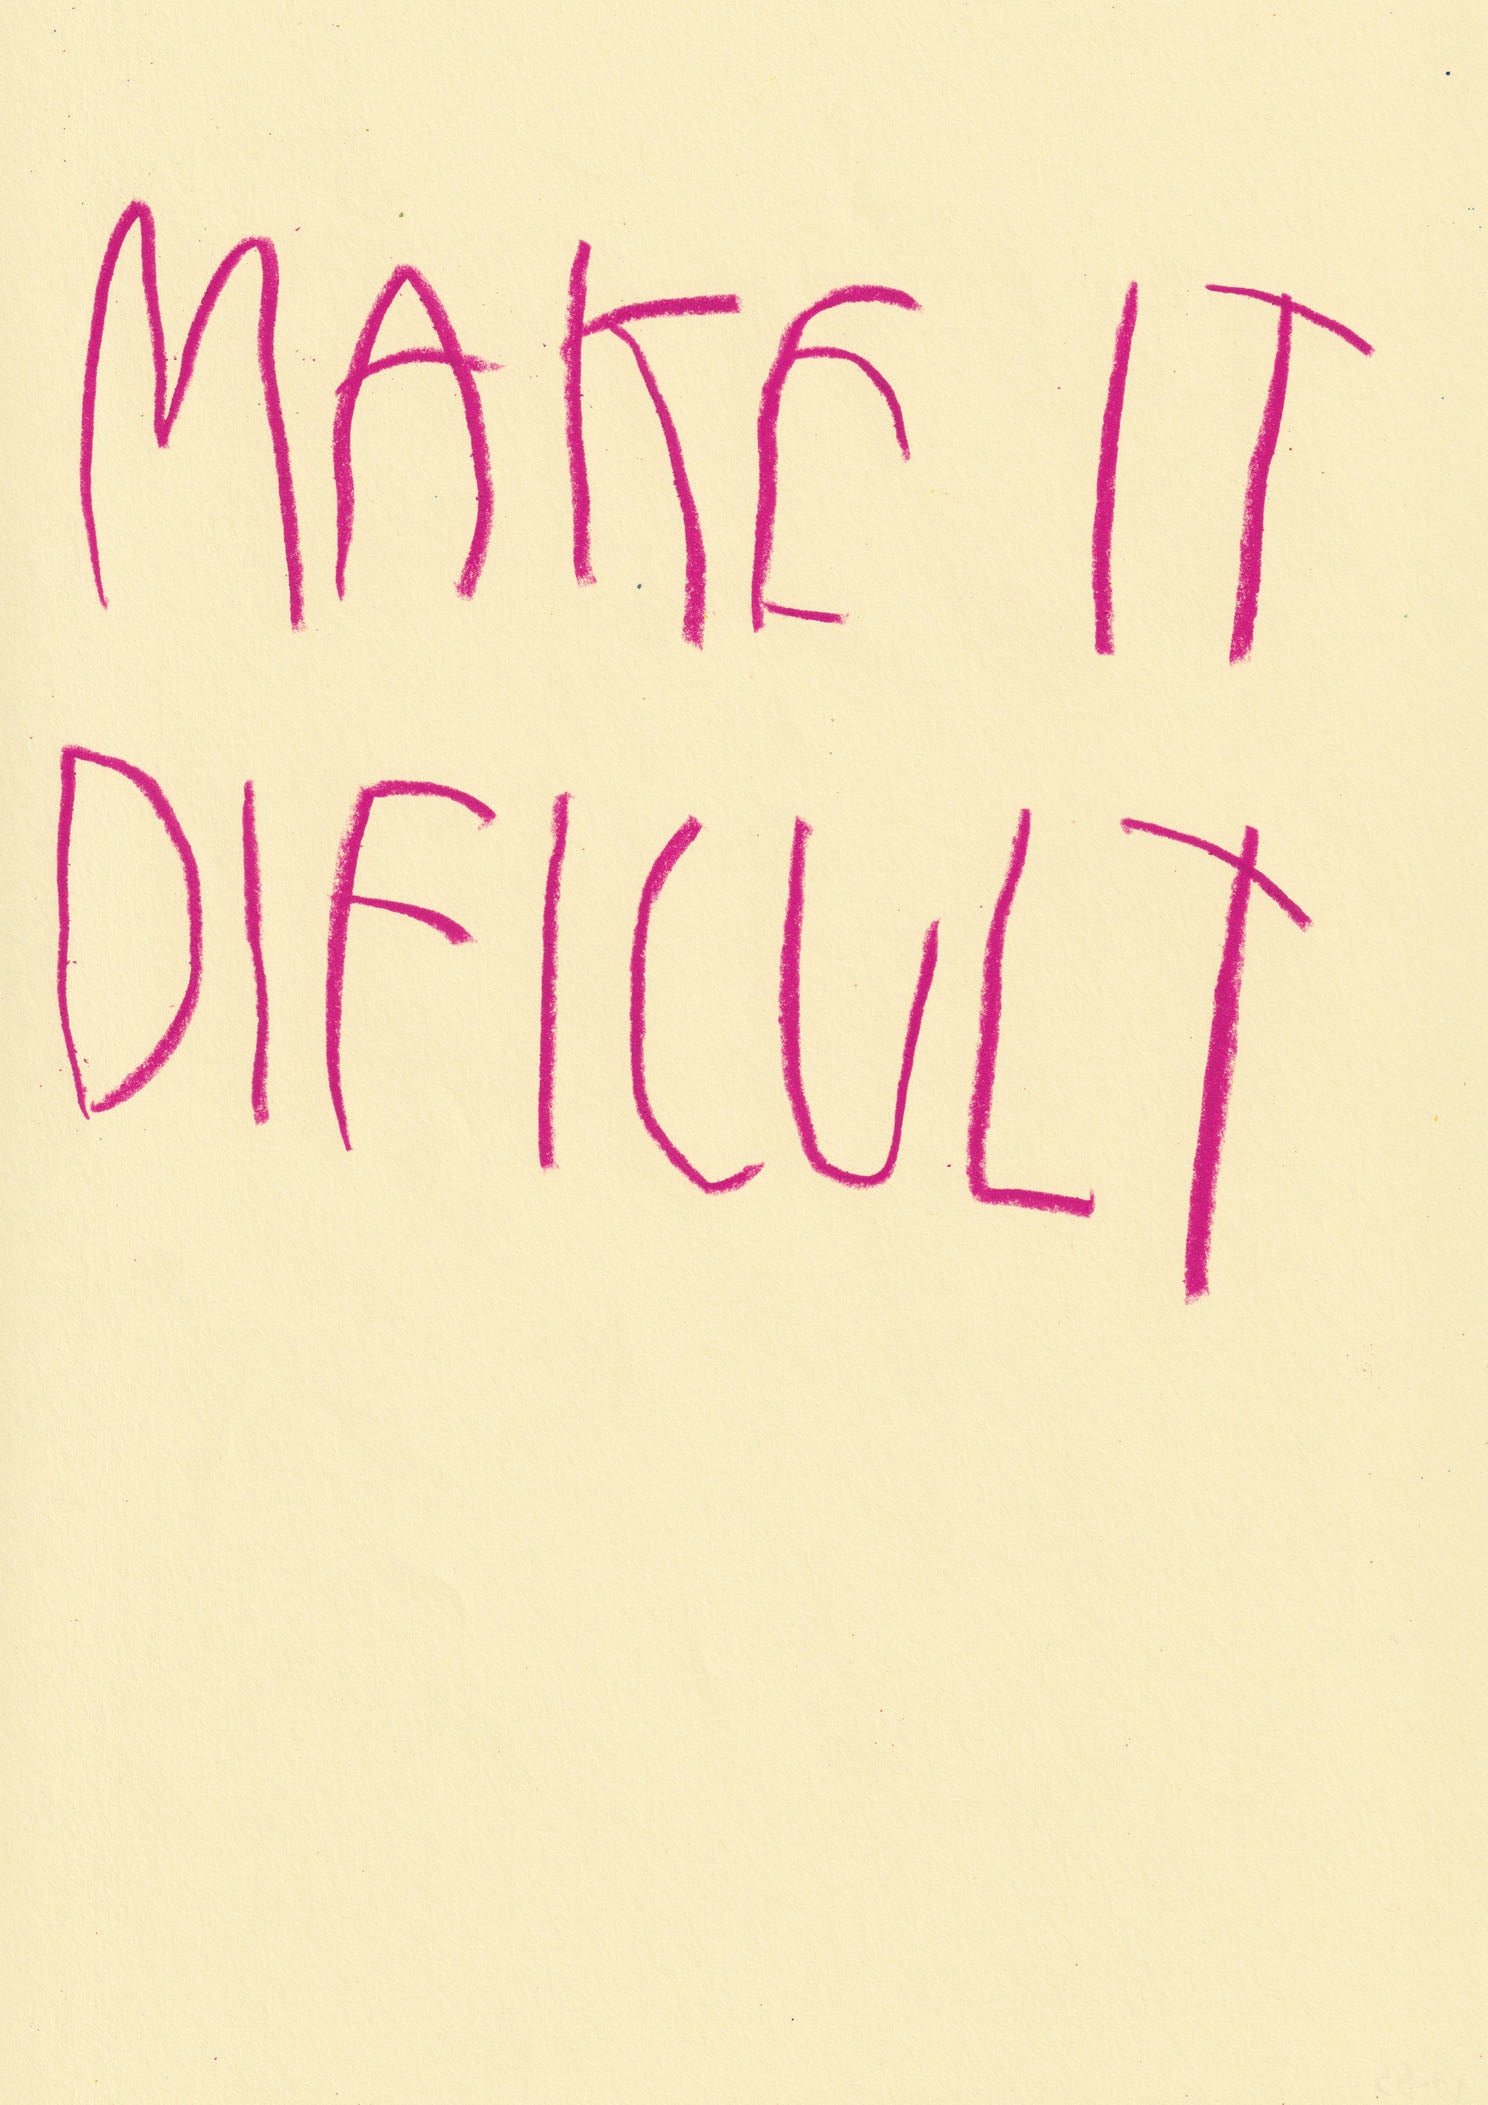 MAKE IT
DIFICULT